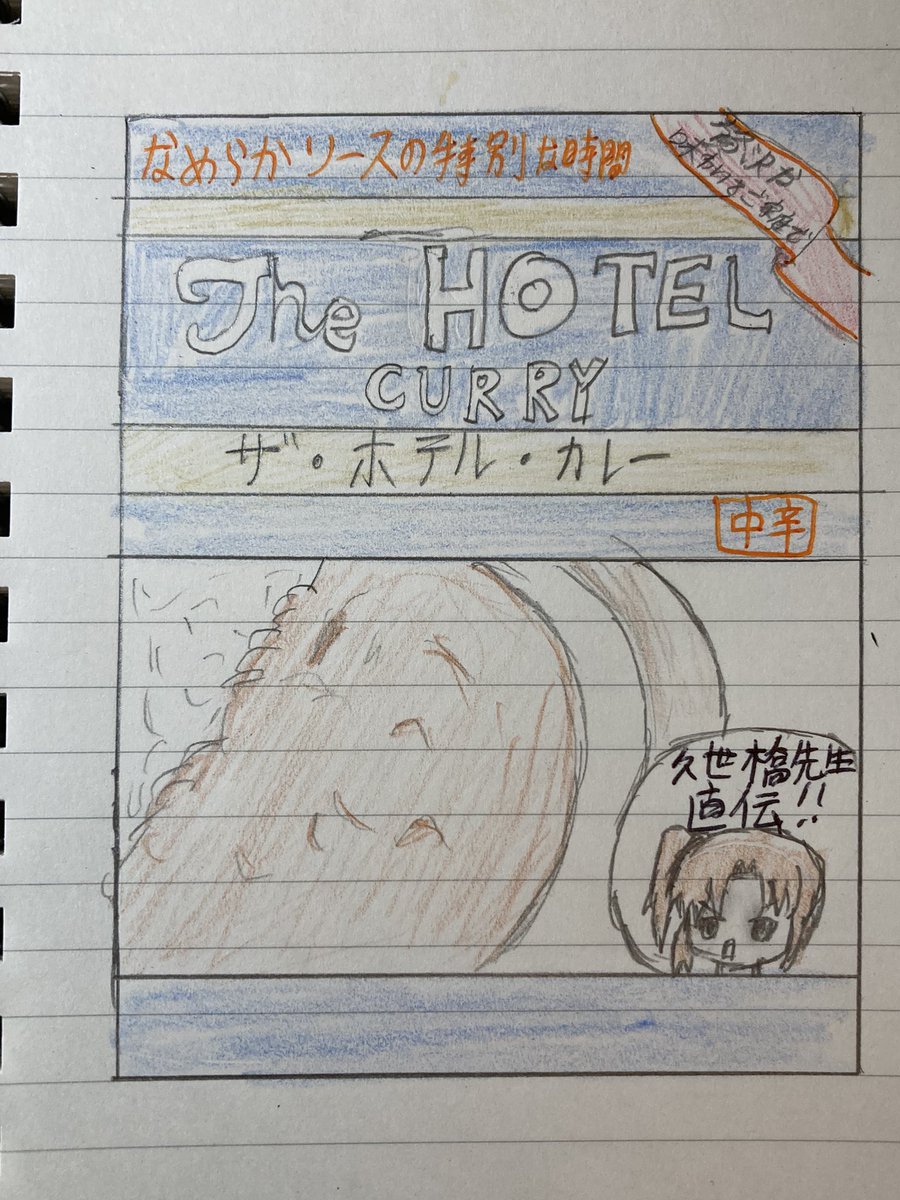 なめらかソースの特別な時間
贅沢な
味わいをご家庭で
The HOTEL
CURRY
ザ・ホテル・カレー
中辛
久世橋先生
直伝!!